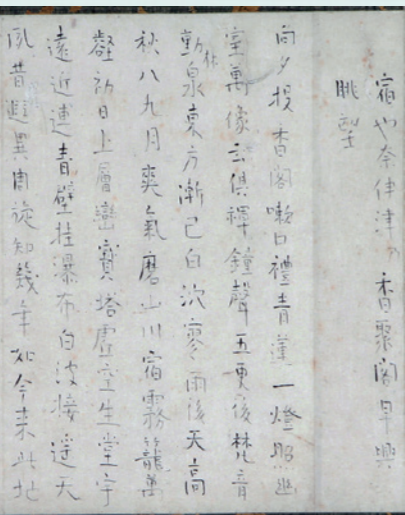 宿也奈伊津の香聚閣早興
眺望
向夕投香閣嗽口禮青蓮一燈照幽
室萬像云俱禪鐘聲五更後梵音
動林泉東方漸已白泬寥雨後天高
秋八九月爽氣磨山川宿霧籠萬
壑初日上層巒寶塔虛空生堂宇
遠近連青壁挂瀑布白波接遥天
夙昔異旋知幾年如今来此地